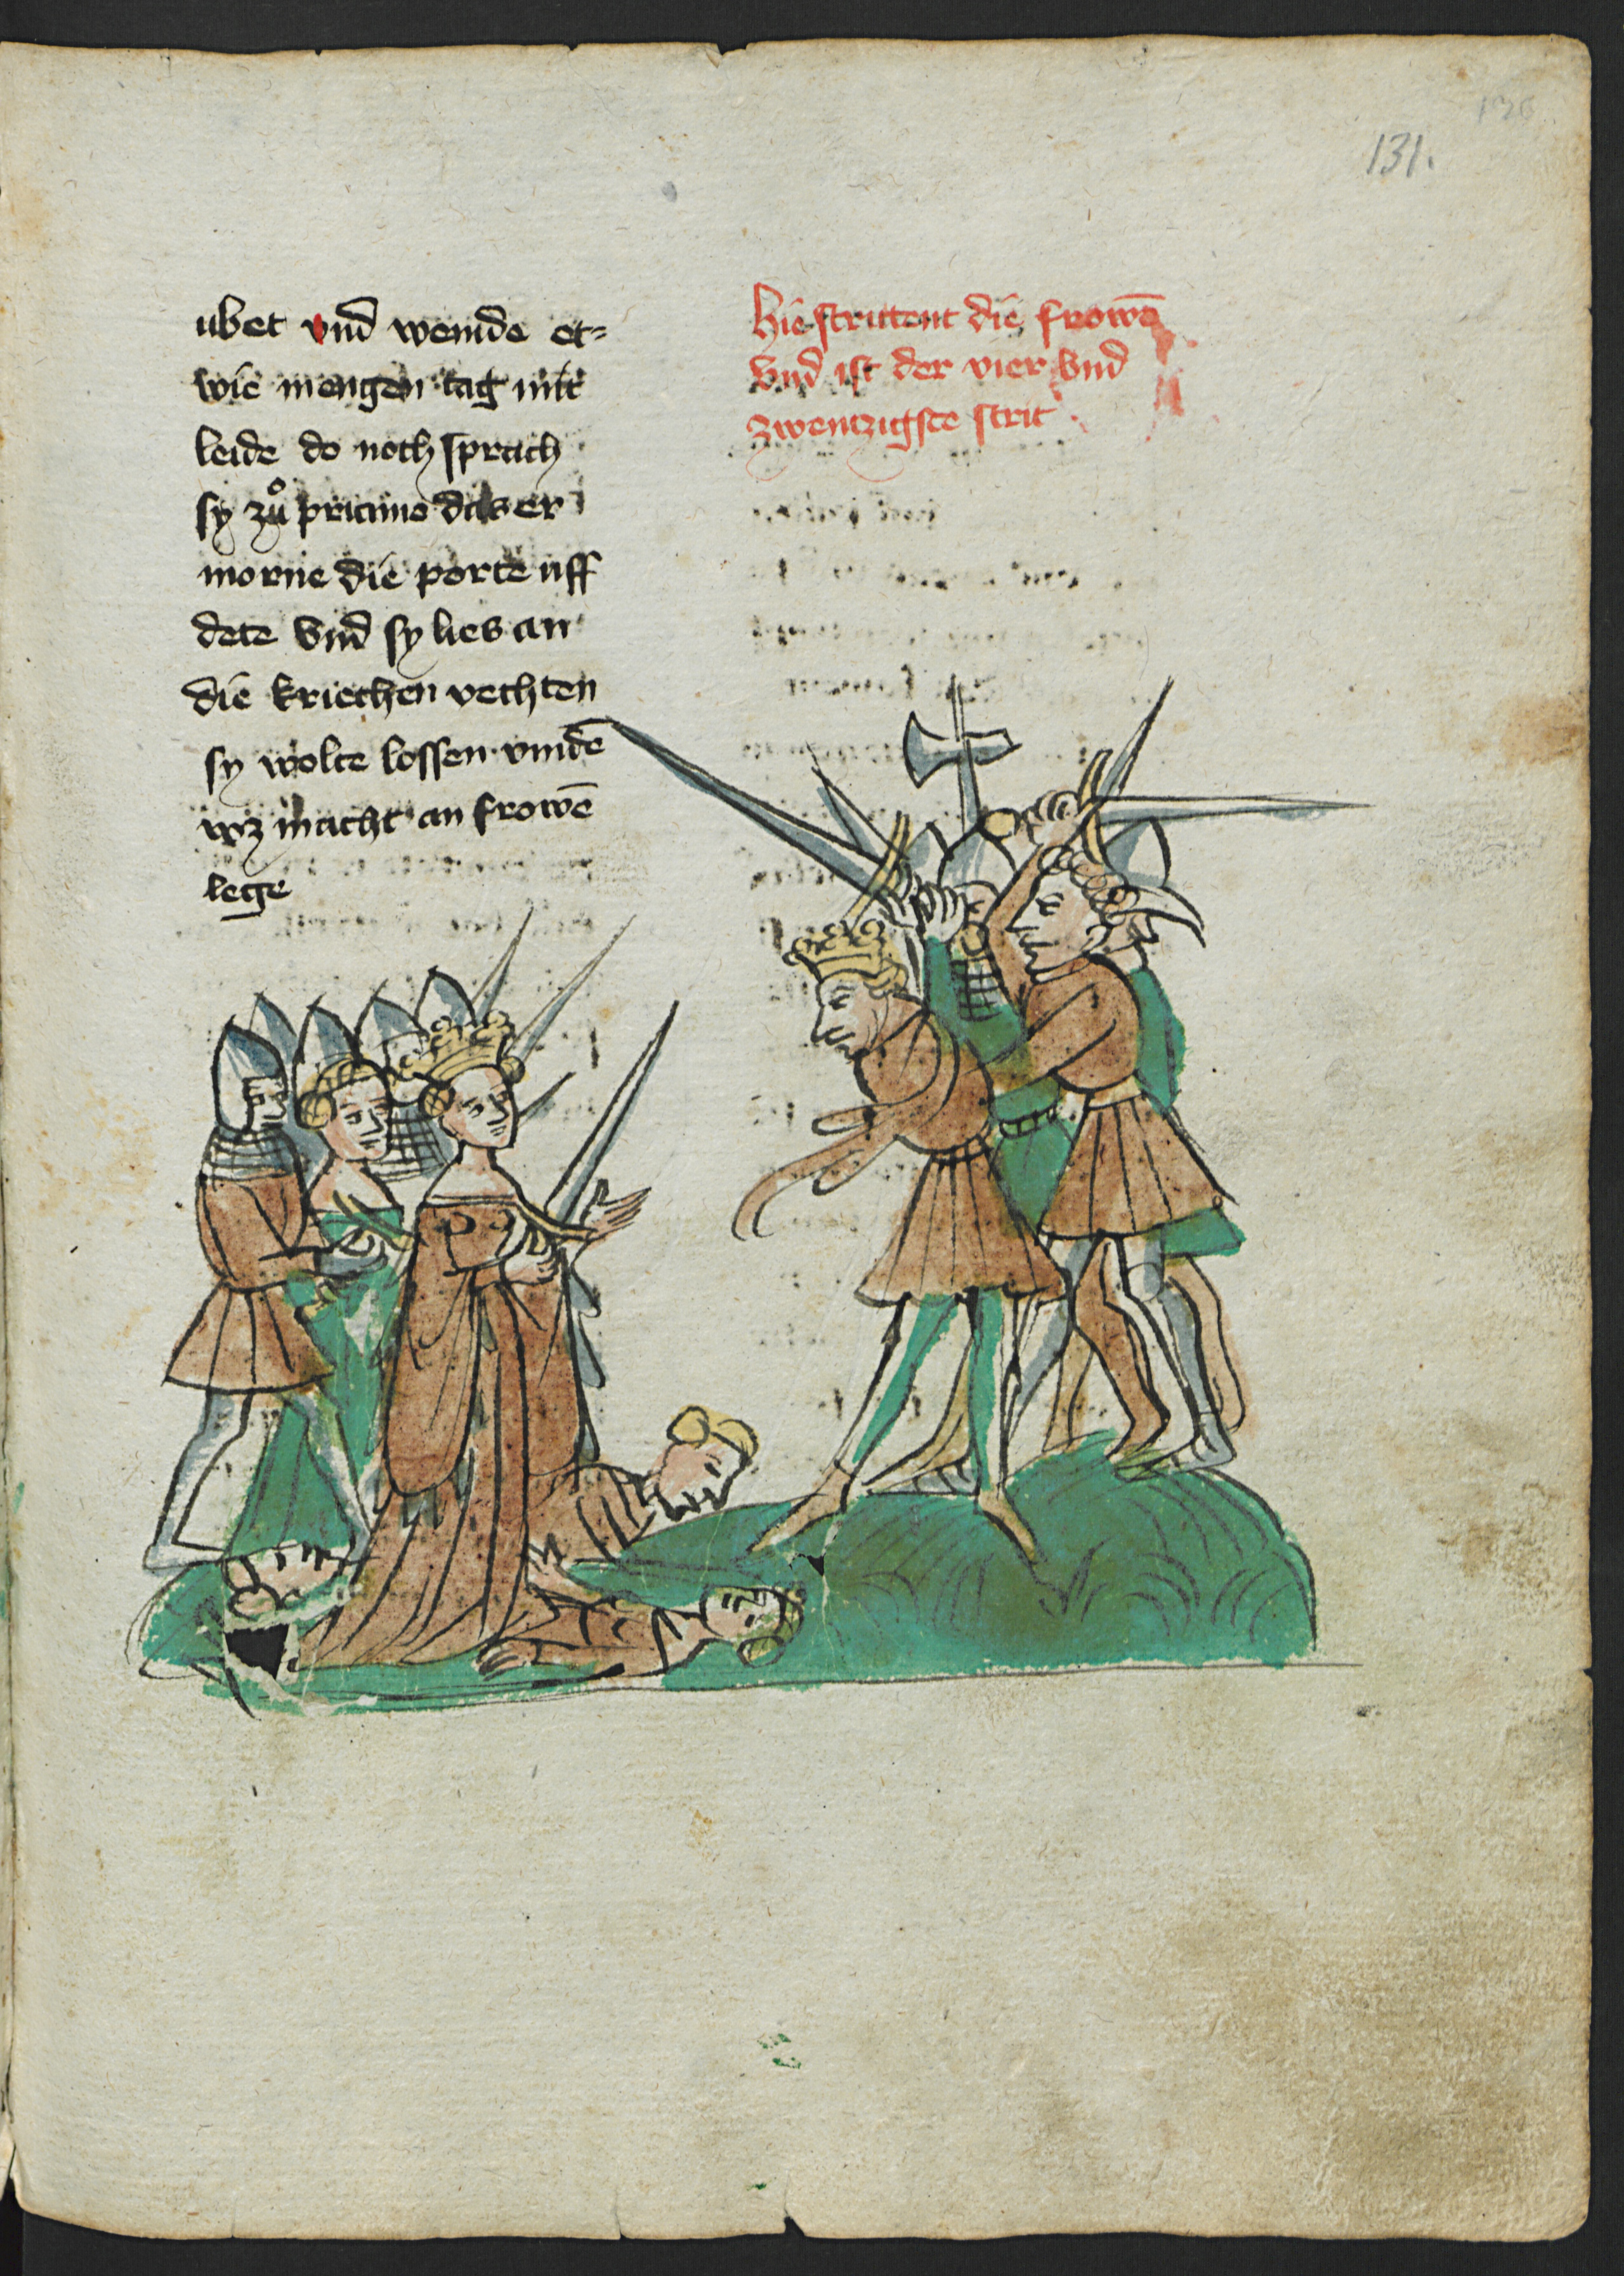 131.
ubet vnd weinde et=
wie mengen tag mit
leide do noch sprach
sy zuͦ priamo das er
morne die porte uff
dete vnd sy lies an
die kriechen vechten
sy wolte lossen vindē
wz macht an frowē
lege
hie strittent die frowē
vnd ist der vier vnd
zwenzigste strit